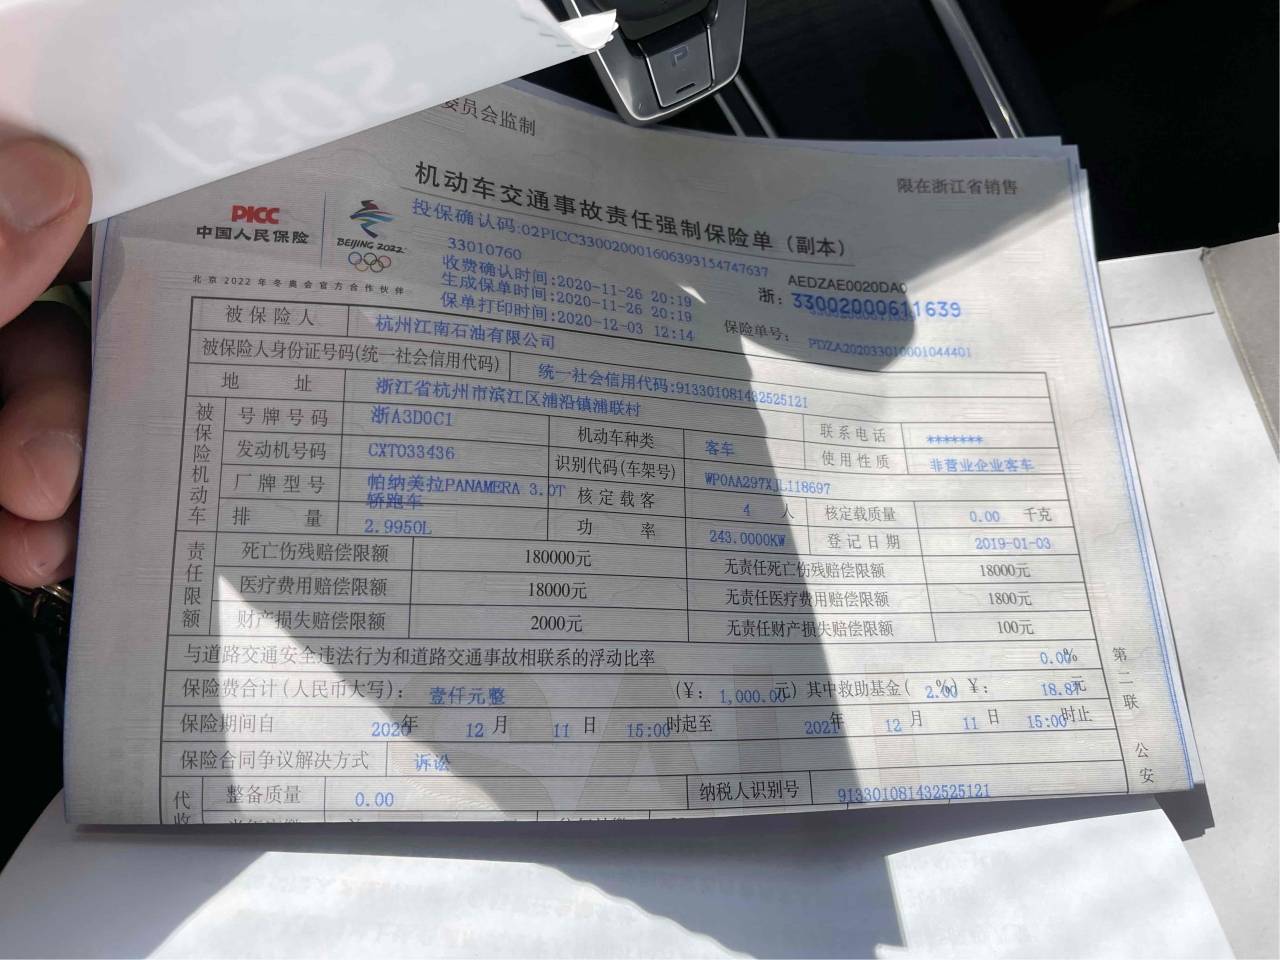 2021
P
委员会监制
限在浙江省销售
机动车交通事故责任强制保险单（副本）
PICC
中国人民保险
BEIJING 2022
北京2022年冬奥会官方合作伙伴
投保确认码:02PICC330020001606393154747637
33010760
收费确认时间:2020-11-26 20:19
生成保单时间:2020-11-26 20:19
保单打印时间:2020-12-03 12:14
AEDZAE0020DA0
浙: 33002000611639
保险单号: PDZA202033010001044401
被保险人 杭州江南石油有限公司
被保险人身份证号码(统一社会信用代码) 统一社会信用代码:913301081432525121
地 址 浙江省杭州市滨江区浦沿镇浦联村
联系电话 *******
被保险机动车
号牌号码 浙A3D0C1 机动车种类 客车 使用性质 非营业企业客车
发动机号码 CXT033436 识别代码(车架号) WP0AA297XJL118697
厂牌型号 帕纳美拉PANAMERA 3.0T轿跑车 核定载客 4 人 核定载质量 0.00 千克
排 量 2.9950L 功 率 243.0000KW 登记日期 2019-01-03
责任限额
死亡伤残赔偿限额 180000元 无责任死亡伤残赔偿限额 18000元
医疗费用赔偿限额 18000元 无责任医疗费用赔偿限额 1800元
财产损失赔偿限额 2000元 无责任财产损失赔偿限额 100元
与道路交通安全违法行为和道路交通事故相联系的浮动比率 0.00%
保险费合计(人民币大写): 壹仟元整 (¥: 1,000.00元) 其中救助基金( 2.00%) ¥: 18.87元
保险期间自 2020年 12 月 11 日 15:00时起至 2021年 12 月 11 日 15:00时止
保险合同争议解决方式 诉讼
代收
整备质量 0.00 纳税人识别号 913301081432525121
第二联
公安